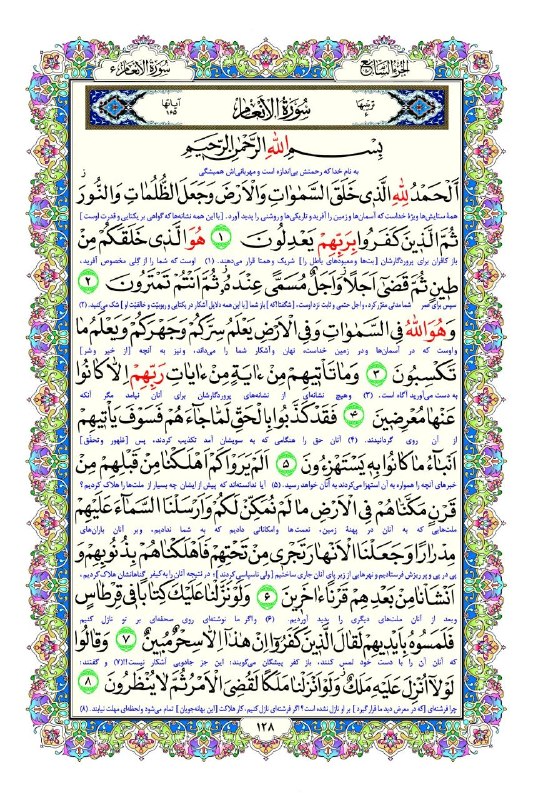 الجزء السابع
سورة الأنعام ٦
ترتیبها ٦
سورة الأنعام
آیاتها ١٦٥
بِسْمِ اللهِ الرَّحْمٰنِ الرَّحِيمِ
به نام خدا که رحمتش بی‌اندازه است و مهربانی‌اش همیشگی
اَلْحَمْدُ لِلّٰهِ الَّذى خَلَقَ السَّمٰوَاتِ وَالْاَرْضَ وَجَعَلَ الظُّلُمَاتِ وَالنُّورَ
همهٔ ستایش‌ها ویژهٔ خداست که آسمان‌ها و زمین را آفرید و تاریکی‌ها و روشنی را پدید آورد. [با این همه نشانه‌ها که گواهی بر یکتایی و قدرت اوست]
ثُمَّ الَّذينَ كَفَرُوا بِرَبِّهِمْ يَعْدِلُونَ ١ هُوَ الَّذى خَلَقَكُمْ مِنْ
باز کافران برای پروردگارشان [بت‌ها و معبودهای باطل را] شریک و همتا قرار می‌دهند. (۱) اوست که شما را از گِلی مخصوص آفرید،
طينٍ ثُمَّ قَضٰى اَجَلًا وَاَجَلٌ مُسَمًّى عِنْدَهُ ثُمَّ اَنْتُمْ تَمْتَرُونَ ٢
سپس برای عمر شما مدتی مقرّر کرد، و اجل حتمی و ثابت نزد اوست، [شگفتا که] باز شما [با این همه دلایل آشکار در یکتایی و ربوبیّت و خالقیّت او] شک می‌کنید. (۲)
وَهُوَ اللهُ فِى السَّمٰوَاتِ وَفِى الْاَرْضِ يَعْلَمُ سِرَّكُمْ وَجَهْرَكُمْ وَيَعْلَمُ مَا
و اوست که در آسمان‌ها و در زمین خداست، نهان و آشکار شما را می‌داند، و نیز به آنچه [از خیر و شر]
تَكْسِبُونَ ٣ وَمَا تَاْتيهِمْ مِنْ ءَايَةٍ مِنْ ءَايَاتِ رَبِّهِمْ اِلَّا كَانُوا
به دست می‌آورید آگاه است. (۳) و هیچ نشانه‌ای از نشانه‌های پروردگارشان برای آنان نیامد مگر آنکه
عَنْهَا مُعْرِضينَ ٤ فَقَدْ كَذَّبُوا بِالْحَقِّ لَمَّا جَاءَهُمْ فَسَوْفَ يَاْتيهِمْ
از آن روی گردانیدند. (۴) آنان حق را هنگامی که به سویشان آمد تکذیب کردند، پس [ظهور و تحقّق]
اَنْبَاءُ مَا كَانُوا بِهِ يَسْتَهْزِءُونَ ٥ اَلَمْ يَرَوْا كَمْ اَهْلَكْنَا مِنْ قَبْلِهِمْ مِنْ
خبرهای آنچه را همواره به آن استهزا می‌کردند به آنان خواهد رسید. (۵) آیا ندانسته‌اند که پیش از ایشان چه بسیار از ملت‌ها را هلاک کردیم؟
قَرْنٍ مَكَّنَّاهُمْ فِى الْاَرْضِ مَا لَمْ نُمَكِّنْ لَكُمْ وَاَرْسَلْنَا السَّمَاءَ عَلَيْهِمْ
ملت‌هایی که به آنان در پهنهٔ زمین، نعمت‌ها و امکاناتی دادیم که به شما ندادیم، و بر آنان باران‌های
مِدْرَارًا وَجَعَلْنَا الْاَنْهَارَ تَجْرى مِنْ تَحْتِهِمْ فَاَهْلَكْنَاهُمْ بِذُنُوبِهِمْ وَ
پی در پی و پر ریزش فرستادیم و نهرهایی از زیر پای آنان جاری ساختیم [ولی ناسپاسی کردند]؛ در نتیجه آنان را به کیفر گناهانشان هلاک کردیم،
اَنْشَاْنَا مِنْ بَعْدِهِمْ قَرْنًا ءَاخَرينَ ٦ وَلَوْ نَزَّلْنَا عَلَيْكَ كِتَابًا فى قِرْطَاسٍ
و بعد از آنان ملت‌های دیگری را پدید آوردیم. (۶) و اگر ما نوشته‌ای روی صفحه‌ای بر تو نازل کنیم
فَلَمَسُوهُ بِاَيْديهِمْ لَقَالَ الَّذينَ كَفَرُوا اِنْ هٰذَا اِلَّا سِحْرٌ مُبينٌ ٧ وَقَالُوا
که آنان آن را با دست خود لمس کنند، باز کفر پیشگان می‌گویند: این جز جادویی آشکار نیست!! (۷) و گفتند:
لَوْلَا اُنْزِلَ عَلَيْهِ مَلَكٌ وَلَوْ اَنْزَلْنَا مَلَكًا لَقُضِىَ الْاَمْرُ ثُمَّ لَا يُنْظَرُونَ ٨
چرا فرشته‌ای [که در معرض دید ما قرار گیرد] بر او نازل نشده است؟ اگر فرشته‌ای نازل کنیم، کار هلاکت [این بهانه‌جویان] تمام می‌شود و لحظه‌ای مهلت نیابند. (۸)
١٢٨